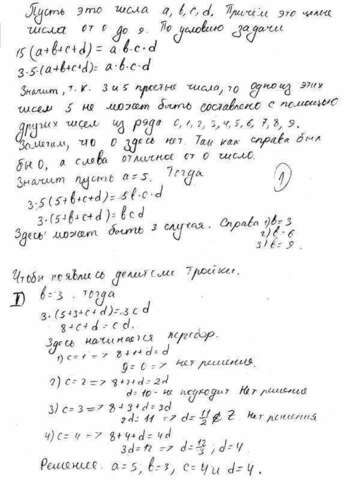 Пусть это числа a, b, c, d. Причём это целые
числа от 0 до 9. По условию задачи
15(a+b+c+d) = a·b·c·d
3·5·(a+b+c+d) = a·b·c·d
Значит, т.к. 3 и 5 простые числа, то одно из этих
чисел 5 не может быть составлено с помощью
других чисел из ряда 0, 1, 2, 3, 4, 5, 6, 7, 8, 9.
Заметим, что 0 здесь нет. Так как справа был
бы 0, а слева отличное от 0 число.
Значит пусть a=5. Тогда
3·5(5+b+c+d) = 5b·c·d
3·(5+b+c+d) = bcd
Здесь может быть 3 случая. Справа 1) b=3
2) b=6
3) b=9.
1
Чтобы появились делители тройки.
I b=3. Тогда
3·(5+3+c+d)=3cd
8+c+d=cd.
Здесь начинается перебор.
1) c=1 => 8+1+d=d
9=0 => нет решения.
2) c=2 => 8+2+d=2d
d=10 - не подходит. Нет решения
3) c=3 => 8+3+d=3d
2d=11 => d=11/2 ∉ Z нет решения
4) c=4 => 8+4+d=4d
3d=12 => d=12/3; d=4.
Решение: a=5, b=3, c=4 и d=4.